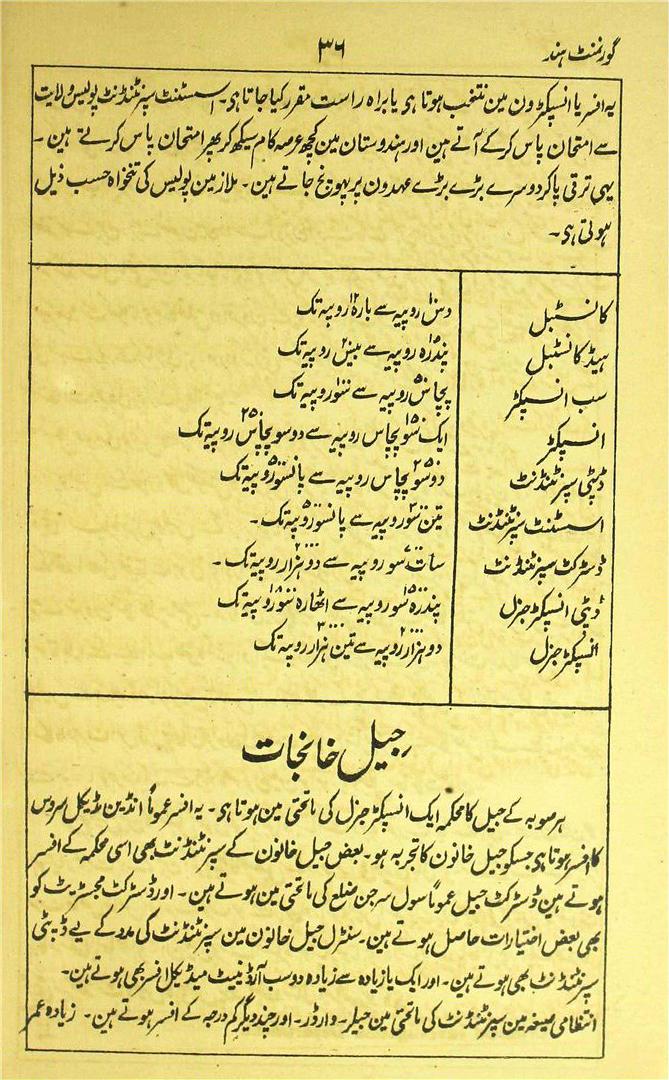 گورنمنٹ ہند
۳۶
یہ افسر یا انسپکٹرون مین منتخب ہوتا ہی یا براہ راست مقرر کیا جاتا ہی۔ اسسٹنٹ سپرنٹنڈنٹ پولیس ولایت
سے امتحان پاس کرکے آتے ہین اور ہندوستان مین کچھ عرصہ کام سیکھ کر پھر امتحان پاس کرتے ہین۔
یہی ترقی پاکر دوسرے بڑے بڑے عہدون پر پہونچ جاتے ہین۔ ملازمین پولیس کی تنخواہ حسب ذیل
ہوتی ہی۔
کانسٹبل دس۱۰ روپیہ سے بارہ۱۲ روپیہ تک
ہیڈ کانسٹبل پندرہ۱۵ روپیہ سے بیس۲۰ روپیہ تک
سب انسپکٹر پچاس۵۰ روپیہ سے سو۱۰۰ روپیہ تک
انسپکٹر ایک سو پچاس۱۵۰ روپیہ سے دو سو پچاس۲۵۰ روپیہ تک
ڈپٹی سپرنٹنڈنٹ دو سو پچاس۲۵۰ روپیہ سے پانسو۵۰۰ روپیہ تک
اسسٹنٹ سپرنٹنڈنٹ تین سو۳۰۰ روپیہ سے پانسو۵۰۰ روپیہ تک۔
ڈسٹرکٹ سپرنٹنڈنٹ سات سو۷۰۰ روپیہ سے دو ہزار۲۰۰۰ روپیہ تک۔
ڈپٹی انسپکٹر جنرل پندرہ سو۱۵۰۰ روپیہ سے اٹھارہ سو۱۸۰۰ روپیہ تک
انسپکٹر جنرل دو ہزار۲۰۰۰ روپیہ سے تین ہزار۳۰۰۰ روپیہ تک
جیل خانجات
ہر صوبہ کے جیل کا محکمہ ایک انسپکٹر جنرل کی ماتحتی مین ہوتا ہی۔ یہ افسر عموماً انڈین مڈیکل سروس
کا افسر ہوتا ہی جسکو جیل خانون کا تجربہ ہو۔ بعض جیل خانون کے سپرنٹنڈنٹ بھی اسی محکمہ کے افسر
ہوتے ہین ڈسٹرکٹ جیل عموماً سول سرجن ضلع کی ماتحتی مین ہوتے ہین۔ اور ڈسٹرکٹ مجسٹریٹ کو
بھی بعض اختیارات حاصل ہوتے ہین۔ سنٹرل جیل خانون مین سپرنٹنڈنٹ کی مدد کے لیے ڈپٹی
سپرنٹنڈنٹ بھی ہوتے ہین۔ اور ایک یا زیادہ سے زیادہ دو سب آرڈینیٹ میڈیکل افسر بھی ہوتے ہین۔
انتظامی صیغہ مین سپرنٹنڈنٹ کی ماتحتی مین جیلر۔ وارڈر۔ اور چند دیگر کم درجہ کے افسر ہوتے ہین۔ زیادہ عمر